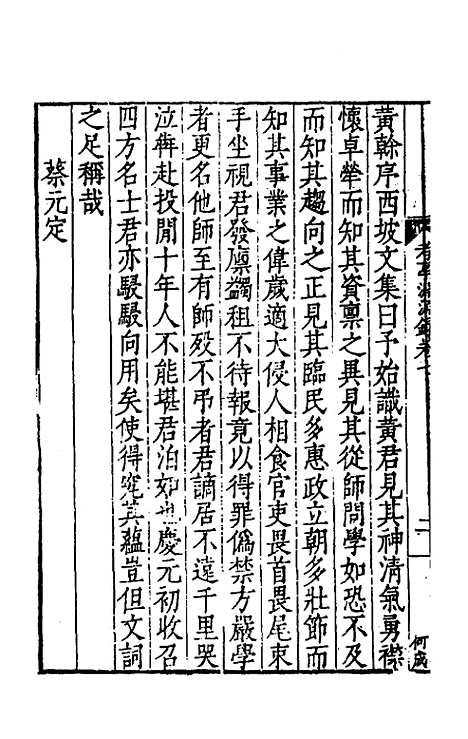 黃榦序西坡文集曰予始識黃君見其神清氣勇襟
懷卓犖而知其資稟之異見其從師問學如恐不及
而知其趨向之正見其臨民多惠政立朝多壯節而
知其事業之偉歲適大侵人相食官吏畏首畏尾束
手坐視君發廪蠲租不待報竟以得罪僞禁方嚴學
者更名他師至有師殁不弔者君謫居不遠千里哭
泣犇赴投閒十年人不能堪君泊如也慶元初收召
四方名士君亦駸駸向用矣使得究其蘊豈但文詞
之足稱哉
蔡元定
考亭淵源錄卷七
二
何成